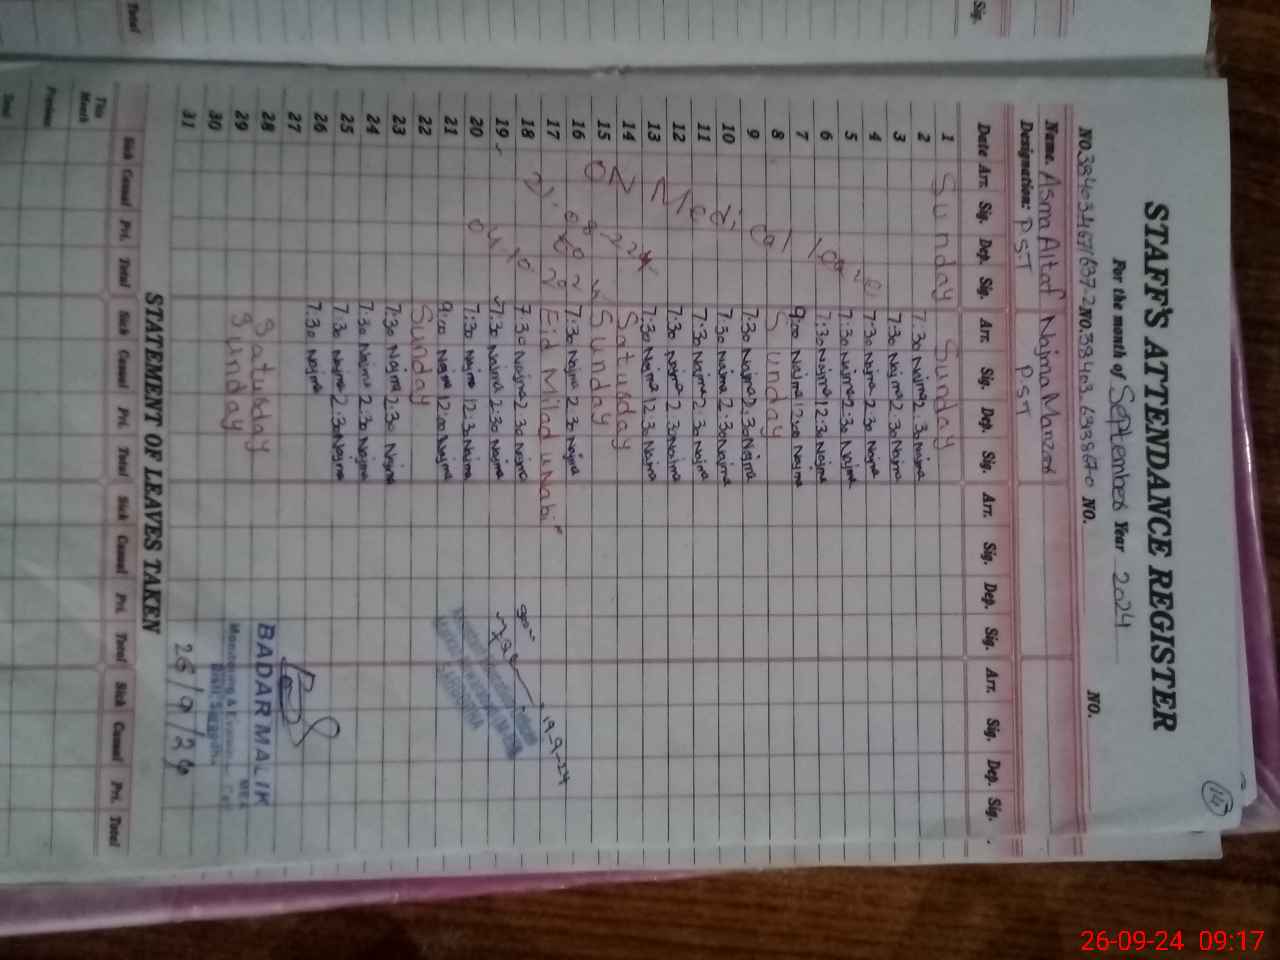 STAFF'S ATTENDANCE REGISTER
14
For the month of September Year 2024
NO. NO. NO.
NO.
Name. Asma Altaf Najma Manzoor
Designation: PST PST
Date Arr. Sig. Dep. Sig. Arr. Sig. Dep. Sig. Arr. Sig. Dep. Sig. Arr. Sig. Dep. Sig.
1 Sunday Sunday
2 7:30 Najma 2:30 Najma
3 7:30 Najma 2:30 Najma
4 7:30 Najma 2:30 Najma
5 7:30 Najma 2:30 Najma
6 7:30 Najma 12:30 Najma
7 9:00 Najma 12:00 Najma
8 Sunday
9 7:30 Najma 2:30 Najma
10 7:30 Najma 2:30 Najma
11 7:30 Najma 2:30 Najma
12 7:30 Najma 2:30 Najma
13 7:30 Najma 12:30 Najma
14 Saturday
15 Sunday
16 7:30 Najma 2:30 Najma
17 Eid Milad un Nabi
18 7:30 Najma 2:30 Najma
19 7:30 Najma 2:30 Najma
20 7:30 Najma 12:30 Najma
21 9:00 Najma 12:00 Najma
22 Sunday
23 7:30 Najma 2:30 Najma
24 7:30 Najma 2:30 Najma
25 7:30 Najma 2:30 Najma
26 7:30 Najma
27
28 Saturday
29 Sunday
30
31
ON Medical
19-9-24
BADAR MALIK
MEA
Monitoring & Evaluation Cell
26/9/24
STATEMENT OF LEAVES TAKEN
Sick Casual Pri. Total Sick Casual Pri. Total Sick Casual Pri. Total Sick Casual Pri. Total
This Month
Previous
Total
Total
Sig.
26-09-24 09:17